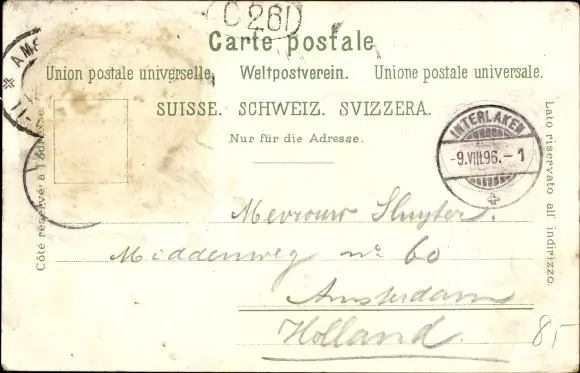 C26D
Carte postale
Union postale universelle. Weltpostverein. Unione postale universale.
SUISSE. SCHWEIZ. SVIZZERA.
Nur für die Adresse.
Côté réservé à l'adresse.
Lato riservato all' indirizzo.
AMS
INTERLAKEN
-9.VIII.96.-1
Mevrouw Sluyter.
Middenweg no. 60
Amsterdam
Holland.
8,-